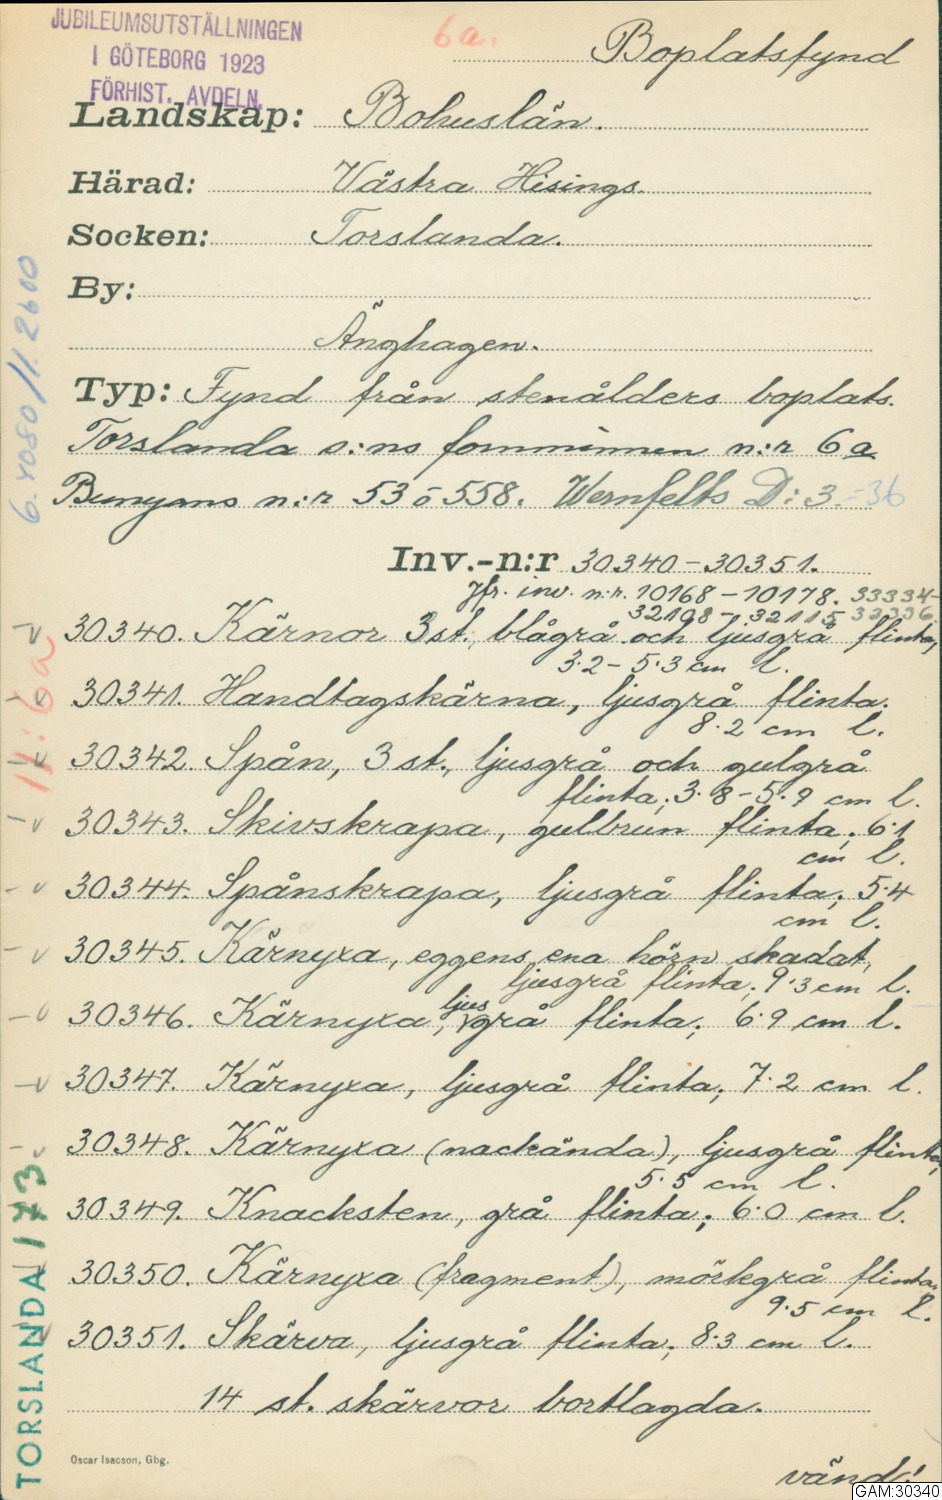 JUBILEUMSUTSTÄLLNINGEN
I GÖTEBORG 1923
FÖRHIST. AVDELN.
6a.
Boplatsfynd
Landskap: Bohuslän.
Härad: Västra Hisings.
Socken: Torslanda.
By:
Änghagen.
Typ: Fynd från stenålders boplats.
Torslanda s:ns fornminnen n:r 6a
n:r 53 ö 558. Wernfelts D: 3.-36
Inv.-n:r 30340-30351.
Jfr. inv. n:r. 10168-10178. 33334-
32108-32115 33336
30340. Kärnor 3 st., blågrå och ljusgrå flinta;
3.2-5.3 cm l.
30341. Handtagskärna, ljusgrå flinta.
8.2 cm l.
30342. Spån, 3 st., ljusgrå och gulgrå
flinta; 3.8-5.9 cm l.
30343. Skivskrapa, gulbrun flinta; 6.1
cm l.
30344. Spånskrapa, ljusgrå flinta; 5.4
cm l.
30345. Kärnyxa, eggens ena hörn skadat,
ljusgrå flinta; 9.3 cm l.
30346. Kärnyxa, ljusgrå flinta; 6.9 cm l.
30347. Kärnyxa, ljusgrå flinta; 7.2 cm l.
30348. Kärnyxa (nackända), ljusgrå flinta;
5.5 cm l.
30349. Knacksten, grå flinta; 6.0 cm l.
30350. Kärnyxa (fragment), mörkgrå flinta.
9.5 cm l.
30351. Skärva, ljusgrå flinta; 8.3 cm l.
14 st. skärvor bortlagda.
Oscar Isacson, Gbg.
vänd!
6.4080/11.2600
11:6a
TORSLANDA 173
GAM:30340